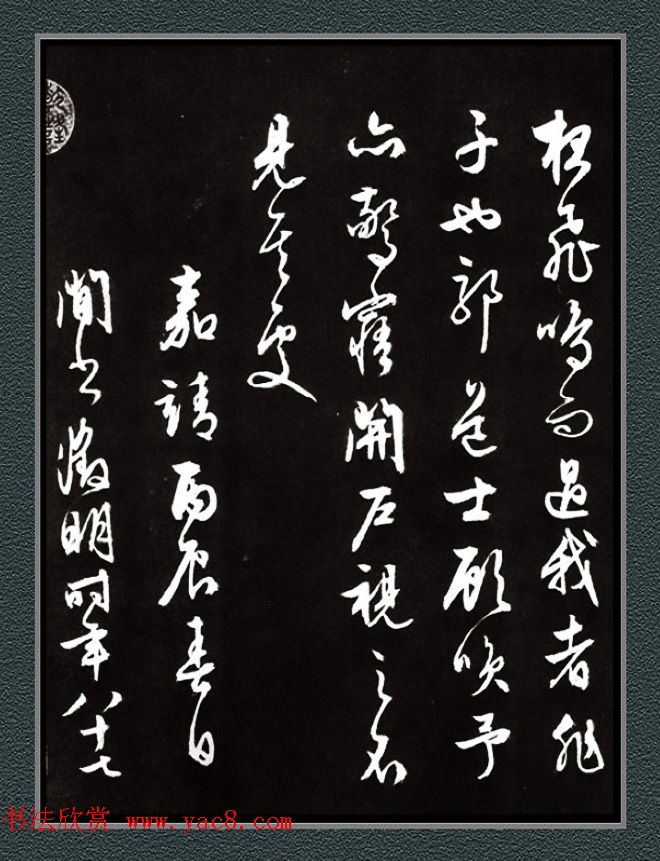 夜飛鳴而過我者非
子也耶道士顧咲予
亦驚寤開戶視之不
見其處
嘉靖丙辰春日
閒書徵明時年八十七
书法欣赏 www.yac8.com